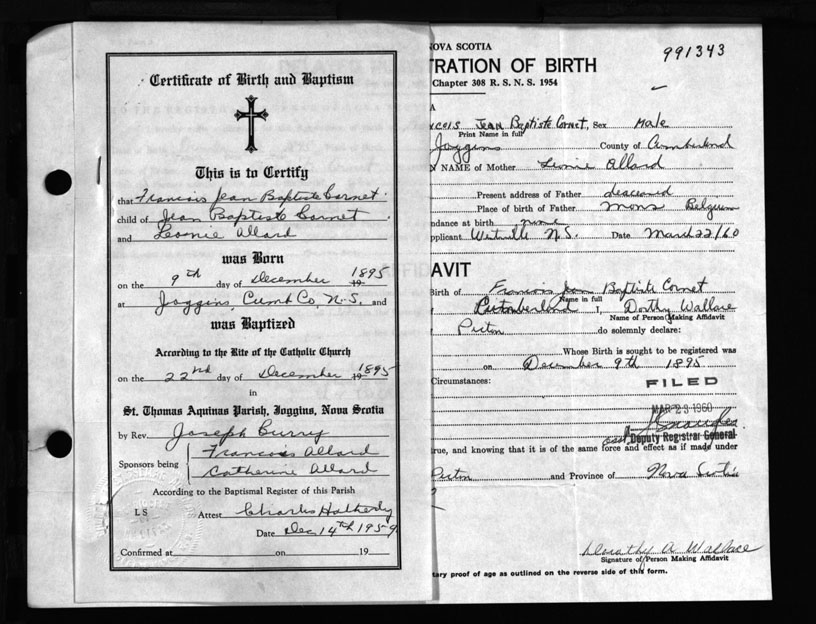 Certificate of Birth and Baptism
This is to Certify
that Francois Jean Baptiste Cornet
child of Jean Baptiste Cornet
and Leonie Allard
was Born
on the 9th day of December 1895
at Joggins, Cumb Co. N.S. and
was Baptized
According to the Rite of the Catholic Church
on the 22nd day of December 1895
in
St. Thomas Aquinas Parish, Joggins, Nova Scotia
by Rev. Joseph Curry
Sponsors being Francois Allard
Catherine Allard
According to the Baptismal Register of this Parish
L S Attest Charles Hatherly
Date Dec 14th 1959
Confirmed at on 19
NOVA SCOTIA
991343
TRATION OF BIRTH
Chapter 308 R. S. N. S. 1954
A
NCOIS Jean Baptiste Cornet, Sex Male
Print Name in full
Joggins County of Cumberland
N NAME of Mother Leonie Allard
Present address of Father deceased
Place of birth of Father Mons Belgium
ndance at birth none
pplicant Westville N.S. Date March 22/60
AVIT
Birth of Francois Jean Baptiste Cornet
Name in full
I, Dorothy Wallace
Name of Person Making Affidavit
Pictou do solemnly declare:
Whose Birth is sought to be registered was
on December 9th 1895
Circumstances:
FILED
MAR 23 1960
Deputy Registrar General
rue, and knowing that it is of the same force and effect as if made under
Pictou and Province of Nova Scotia
Dorothy A Wallace
Signature of Person Making Affidavit
tary proof of age as outlined on the reverse side of this form.